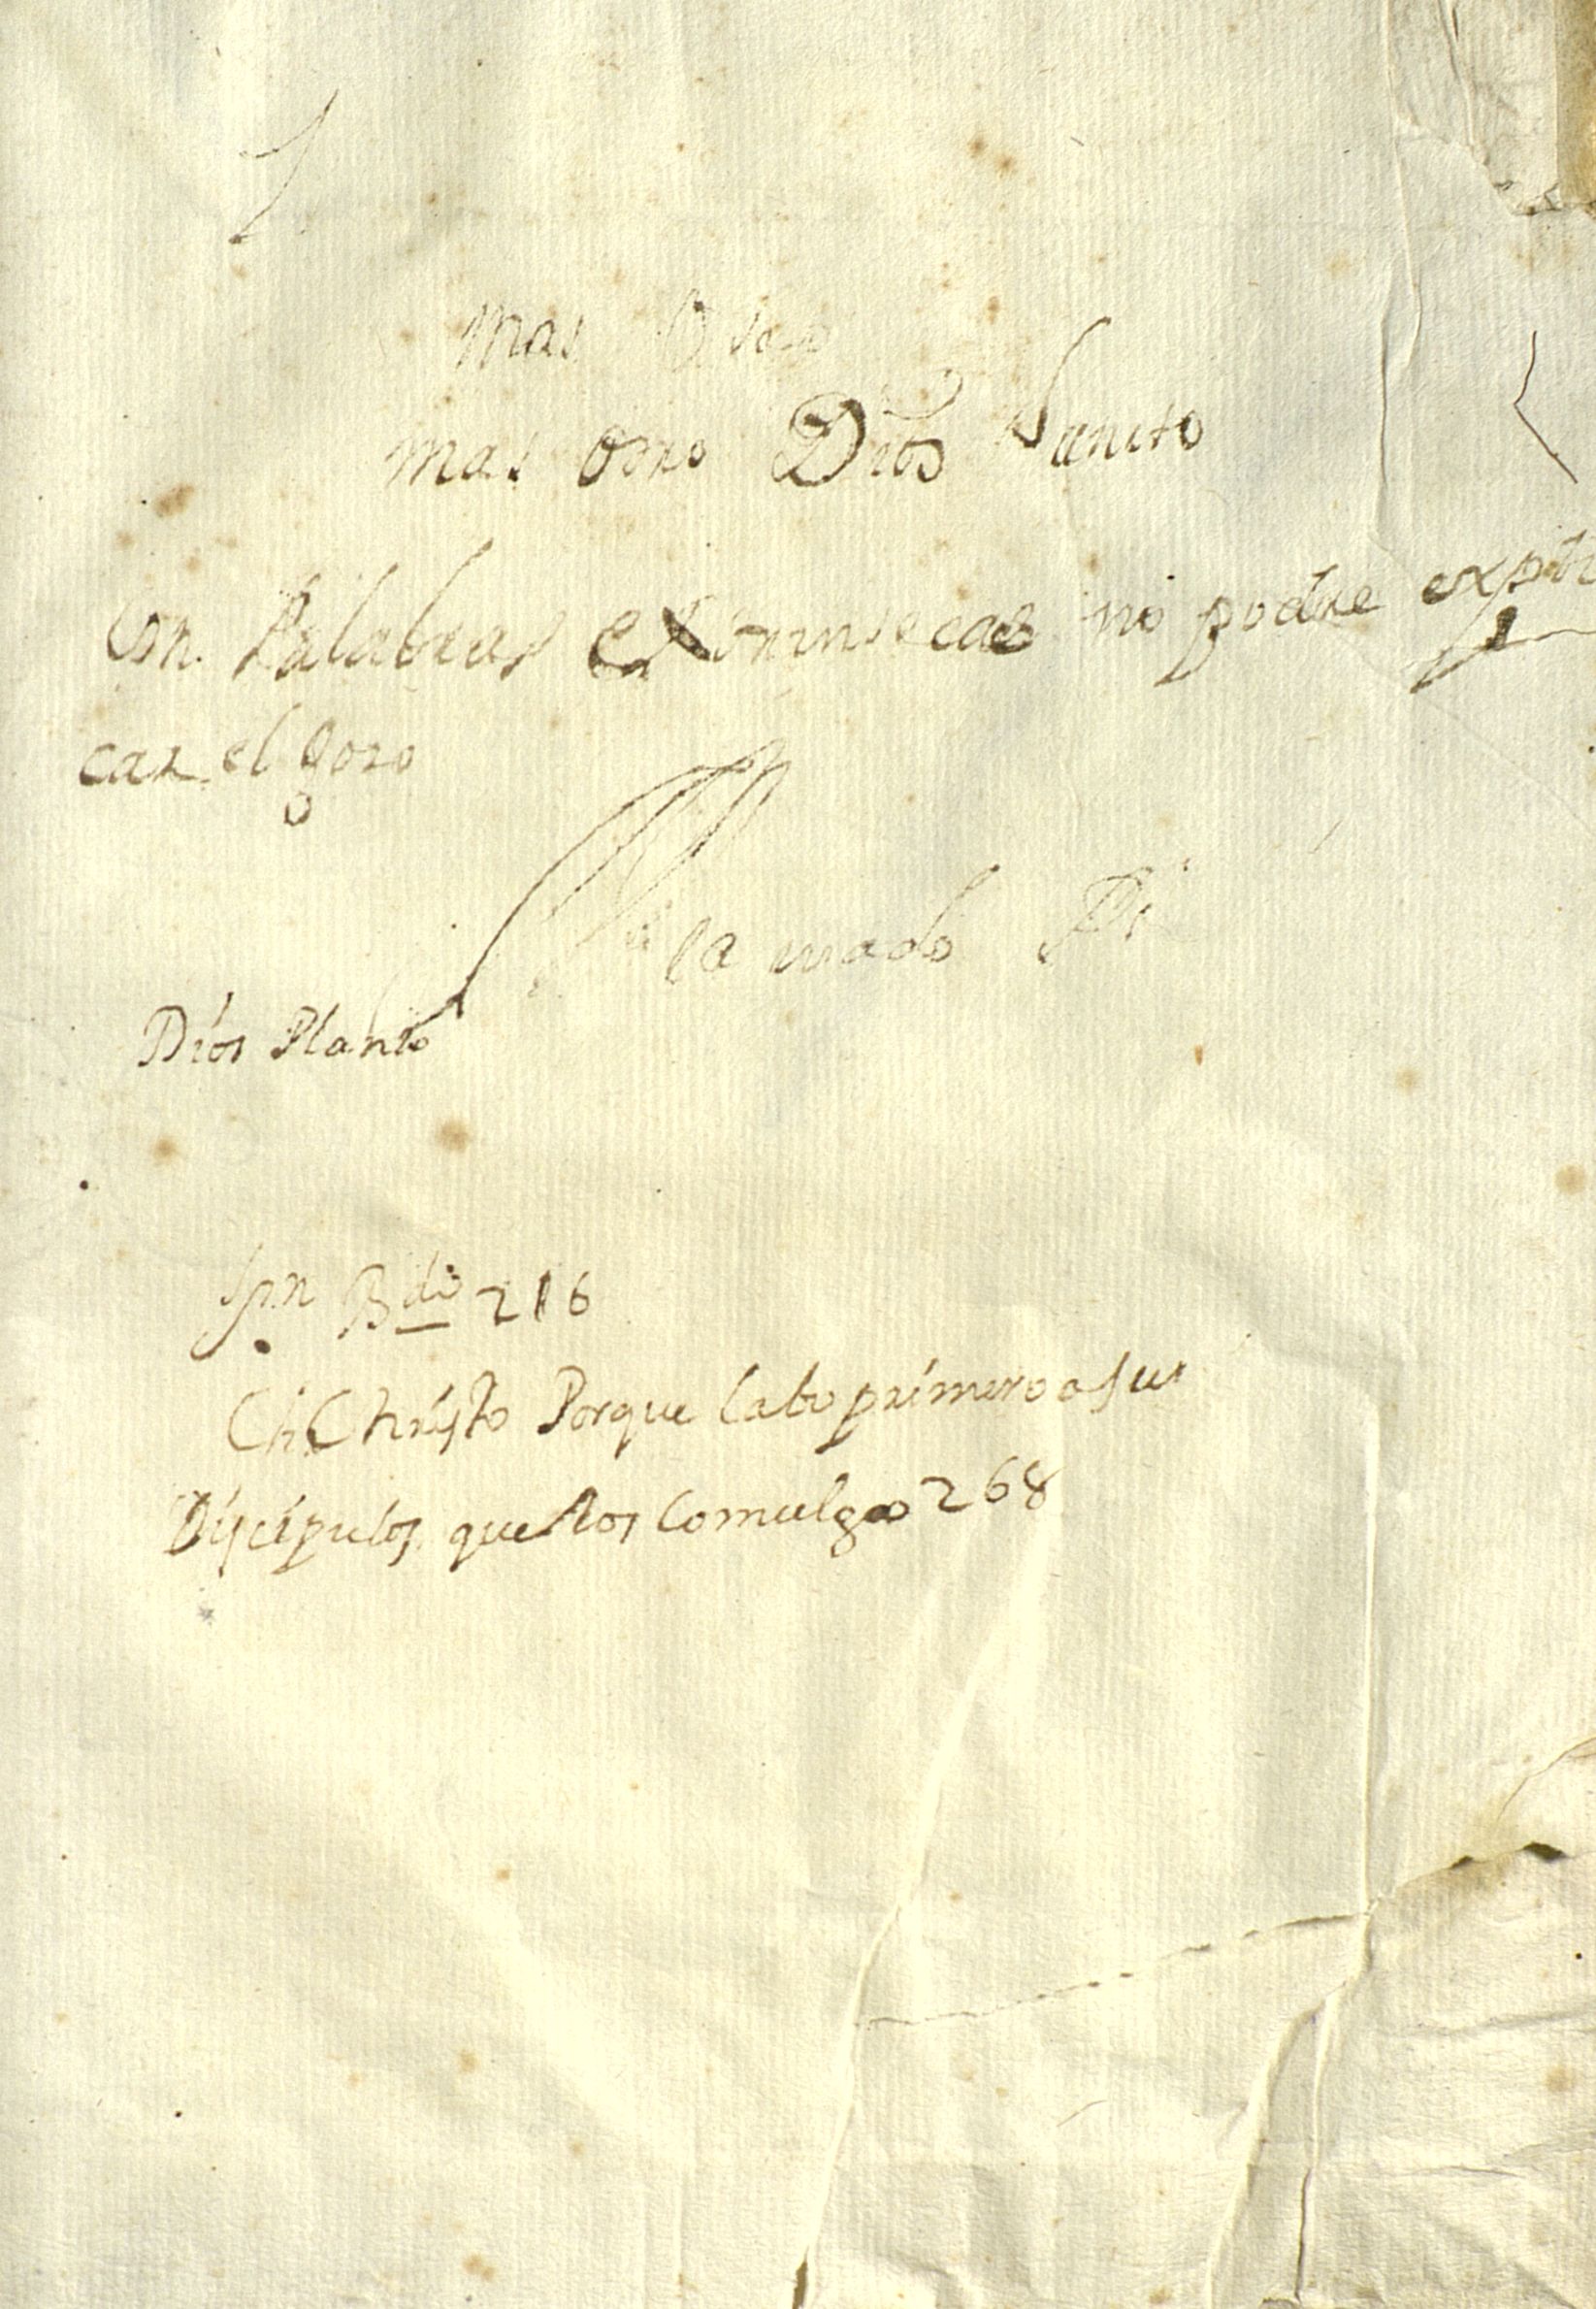 mas
mas Dios
Con Palabras extrinsecas no podre expli
car el gozo
la
Dios Planto
Spn Bdio 216
Christo Porque labo primero a sus
Discipulos que los Comulgo 268